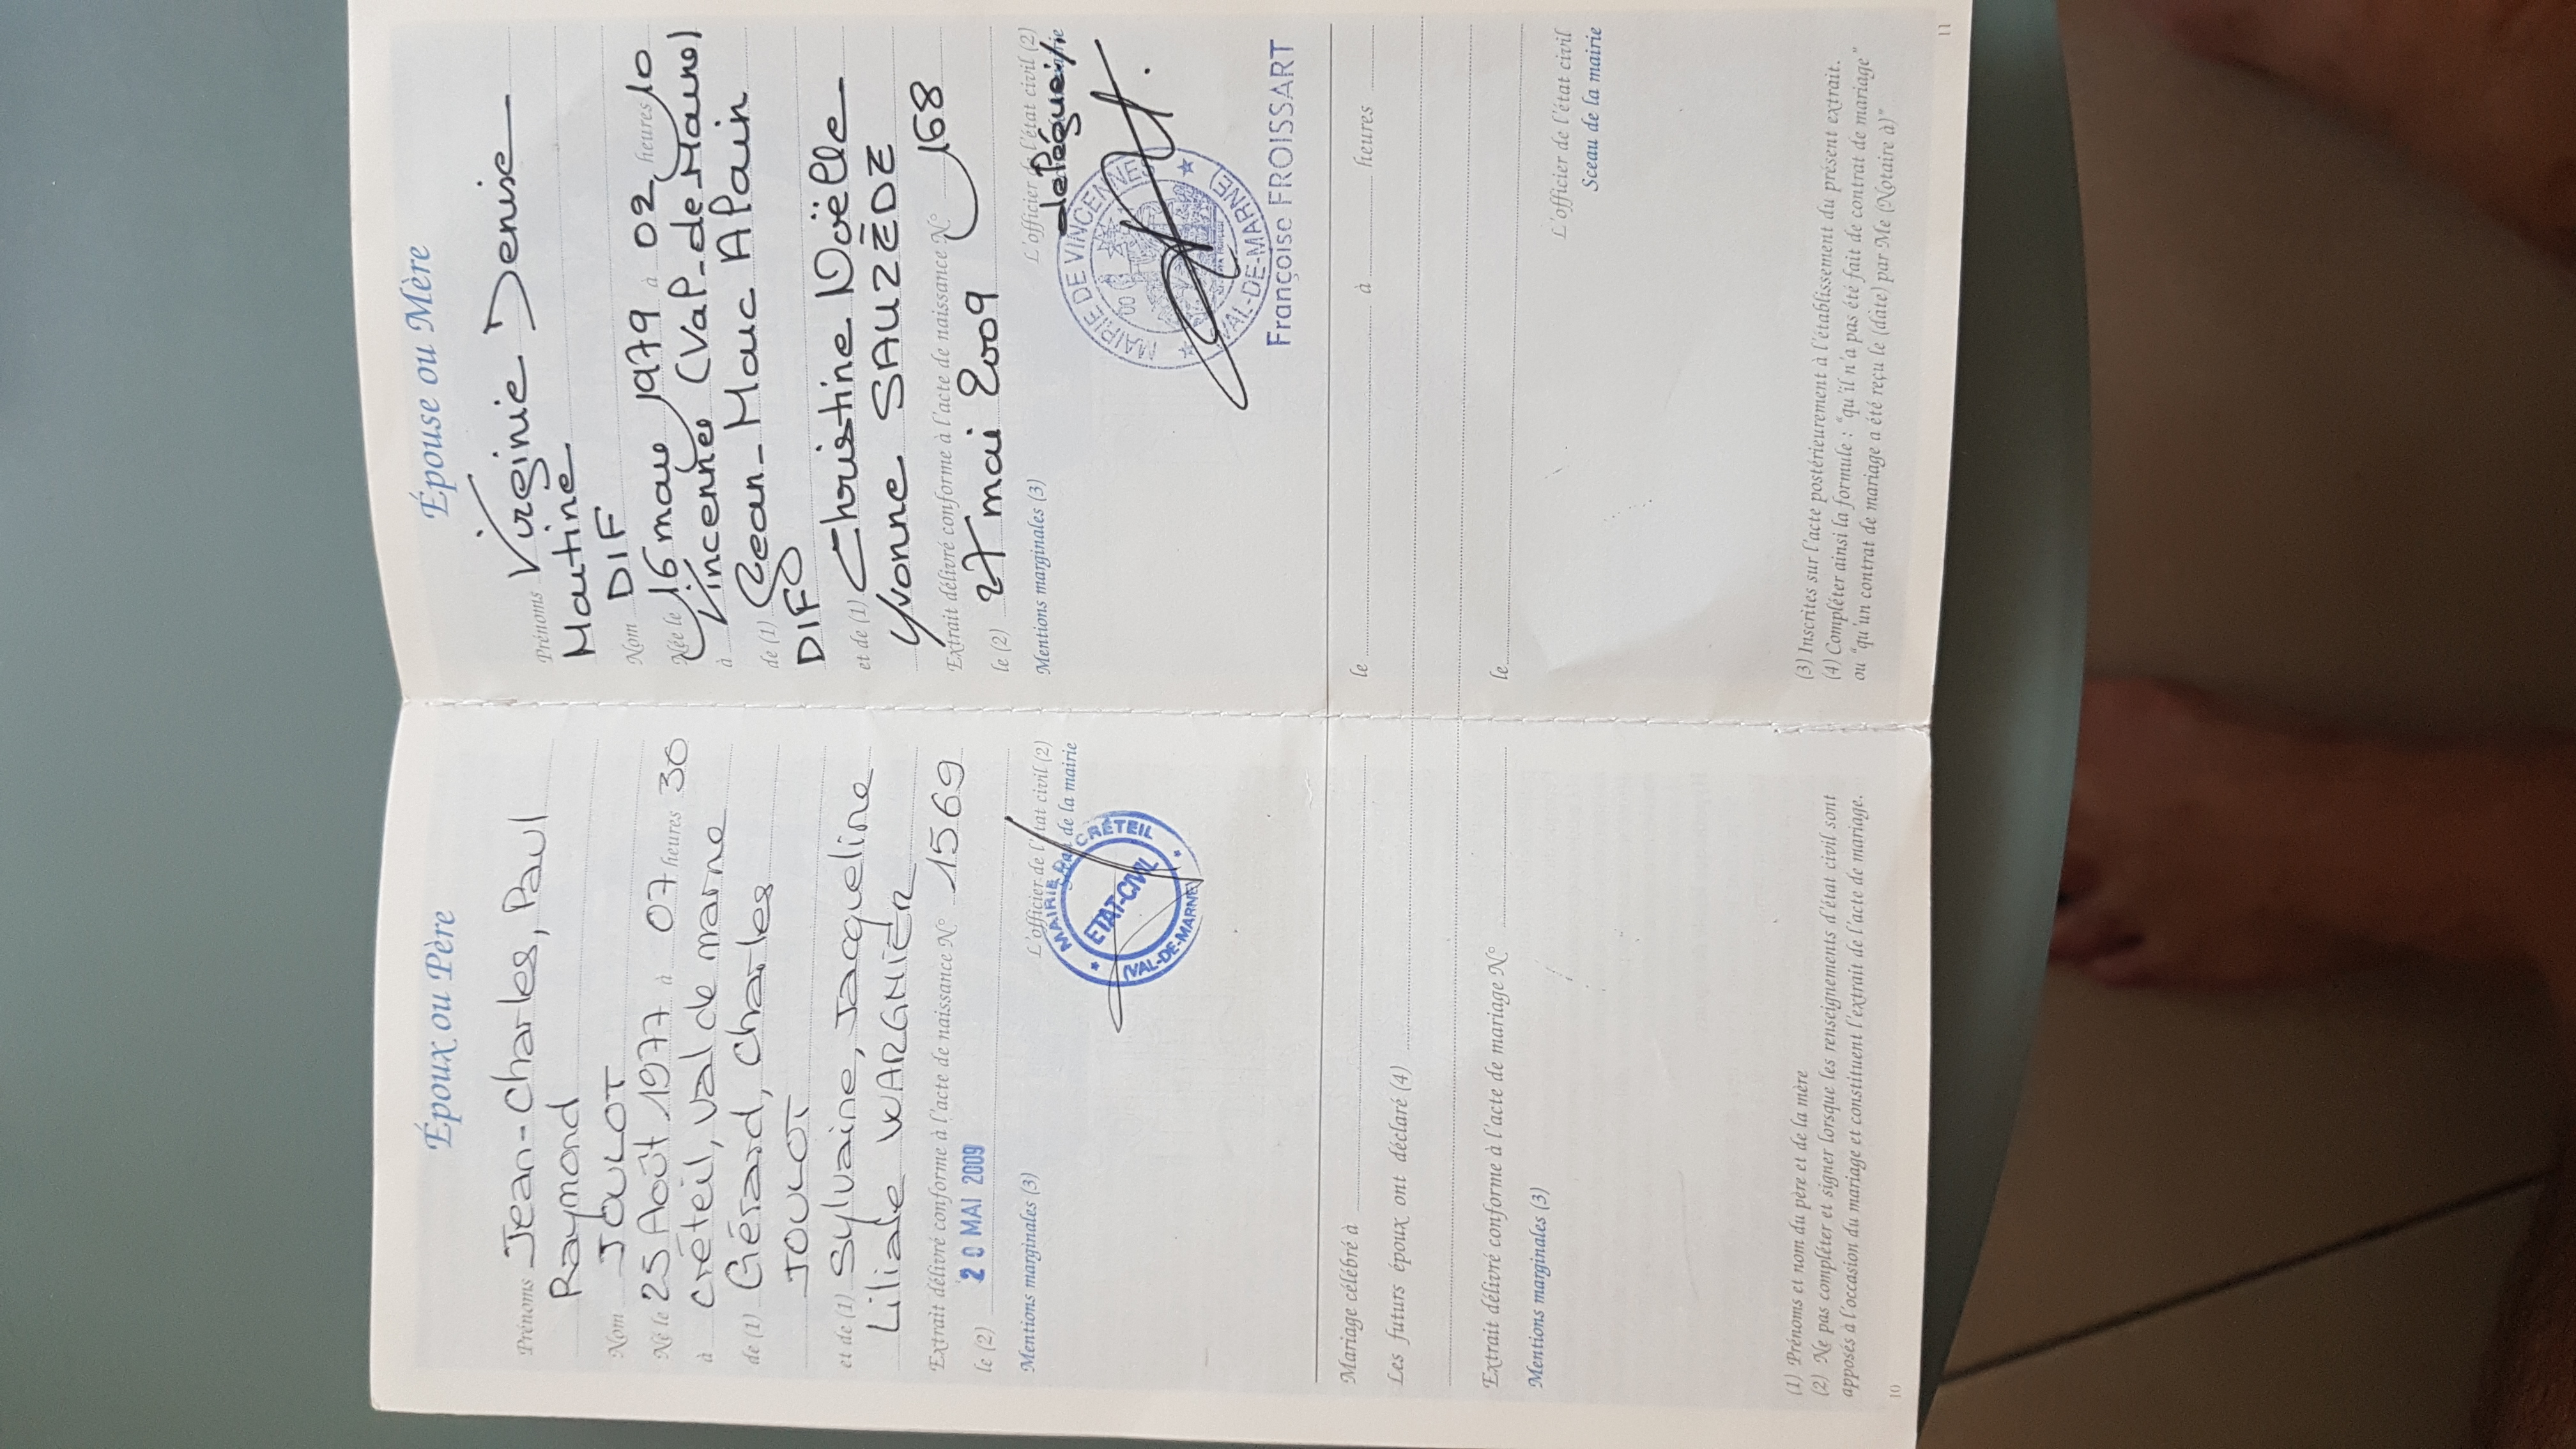 Époux ou Père
Prénoms Jean-Charles, Paul
Raymond
Nom JOULOT
Né le 25 Août 1977 à 07 heures 30
à Créteil, val de marne
de (1) Gérard, Charles
JOULOT
et de (1) Sylvaine, Jacqueline
Liliane WARGNIER
Extrait délivré conforme à l'acte de naissance N° 1569
le (2) 20 MAI 2009
L'officier de l'état civil (2)
de la mairie
Mentions marginales (3)
MAIRIE DE CRÉTEIL
ETAT-CIVIL
(VAL-DE-MARNE)
Épouse ou Mère
Prénoms Virginie Denise
Martine
Nom DIF
Née le 16 mars 1979 à 02 heures 10
à Vincennes (Val-de-Marne)
de (1) Jean-Marc Alain
DIF
et de (1) Christine Noëlle
Yvonne SAUZÈDE
Extrait délivré conforme à l'acte de naissance N° 168
le (2) 27 mai 2009
L'officier de l'état civil (2)
Mentions marginales (3)
MAIRIE DE VINCENNES
(VAL-DE-MARNE)
Françoise FROISSART
Mariage célébré à le à heures
Les futurs époux ont déclaré (4)
Extrait délivré conforme à l'acte de mariage N° le
Mentions marginales (3)
L'officier de l'état civil
Sceau de la mairie
(1) Prénoms et nom du père et de la mère
(2) Ne pas compléter et signer lorsque les renseignements d'état civil sont
apposés à l'occasion du mariage et constituent l'extrait de l'acte de mariage.
10
(3) Inscrites sur l'acte postérieurement à l'établissement du présent extrait.
(4) Compléter ainsi la formule : "qu'il n'a pas été fait de contrat de mariage"
ou "qu'un contrat de mariage a été reçu le (date) par Me (Notaire à)"
11